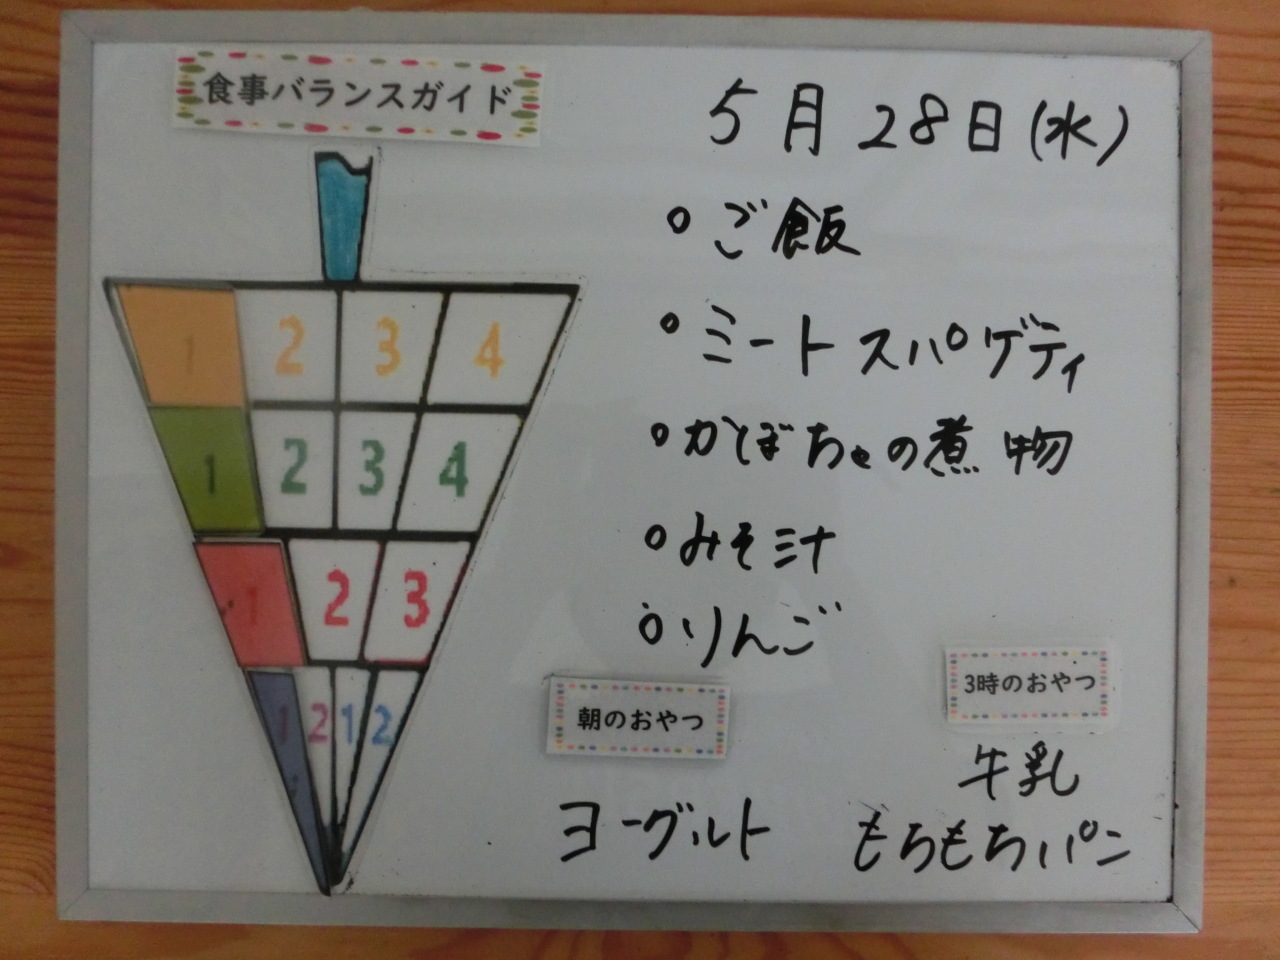 食事バランスガイド
5月28日(水)
○ ご飯
○ ミートスパゲティ
○ かぼちゃの煮物
○ みそ汁
○ りんご
1 2 3 4
1 2 3 4
1 2 3
1 2 1 2
朝のおやつ
ヨーグルト
3時のおやつ
牛乳
もちもちパン